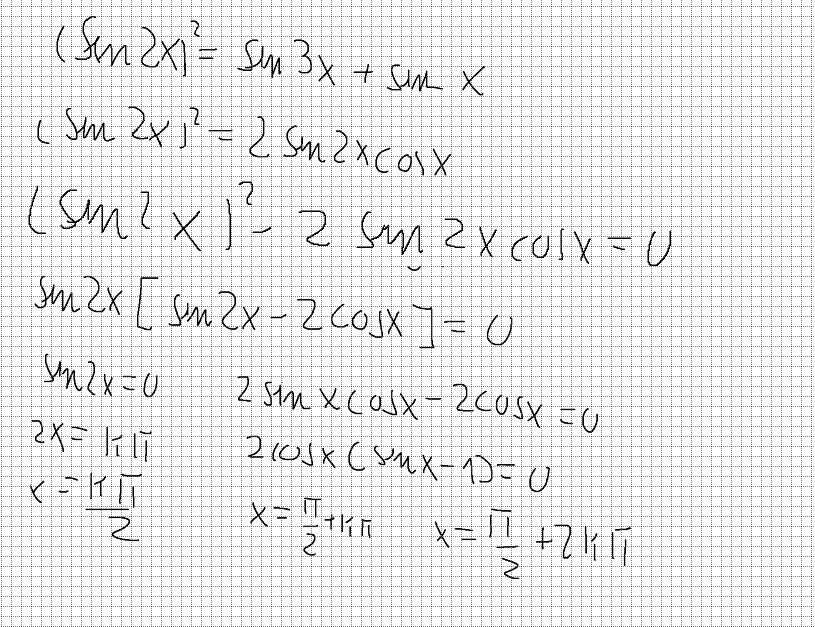 (sin 2x)² = sin 3x + sin x
(sin 2x)² = 2 sin 2x cos x
(sin 2x)² - 2 sin 2x cos x = 0
sin 2x [ sin 2x - 2 cos x ] = 0
sin 2x = 0    2 sin x cos x - 2 cos x = 0
2x = kπ    2 cos x (sin x - 1) = 0
x = kπ/2    x = π/2 + kπ    x = π/2 + 2kπ